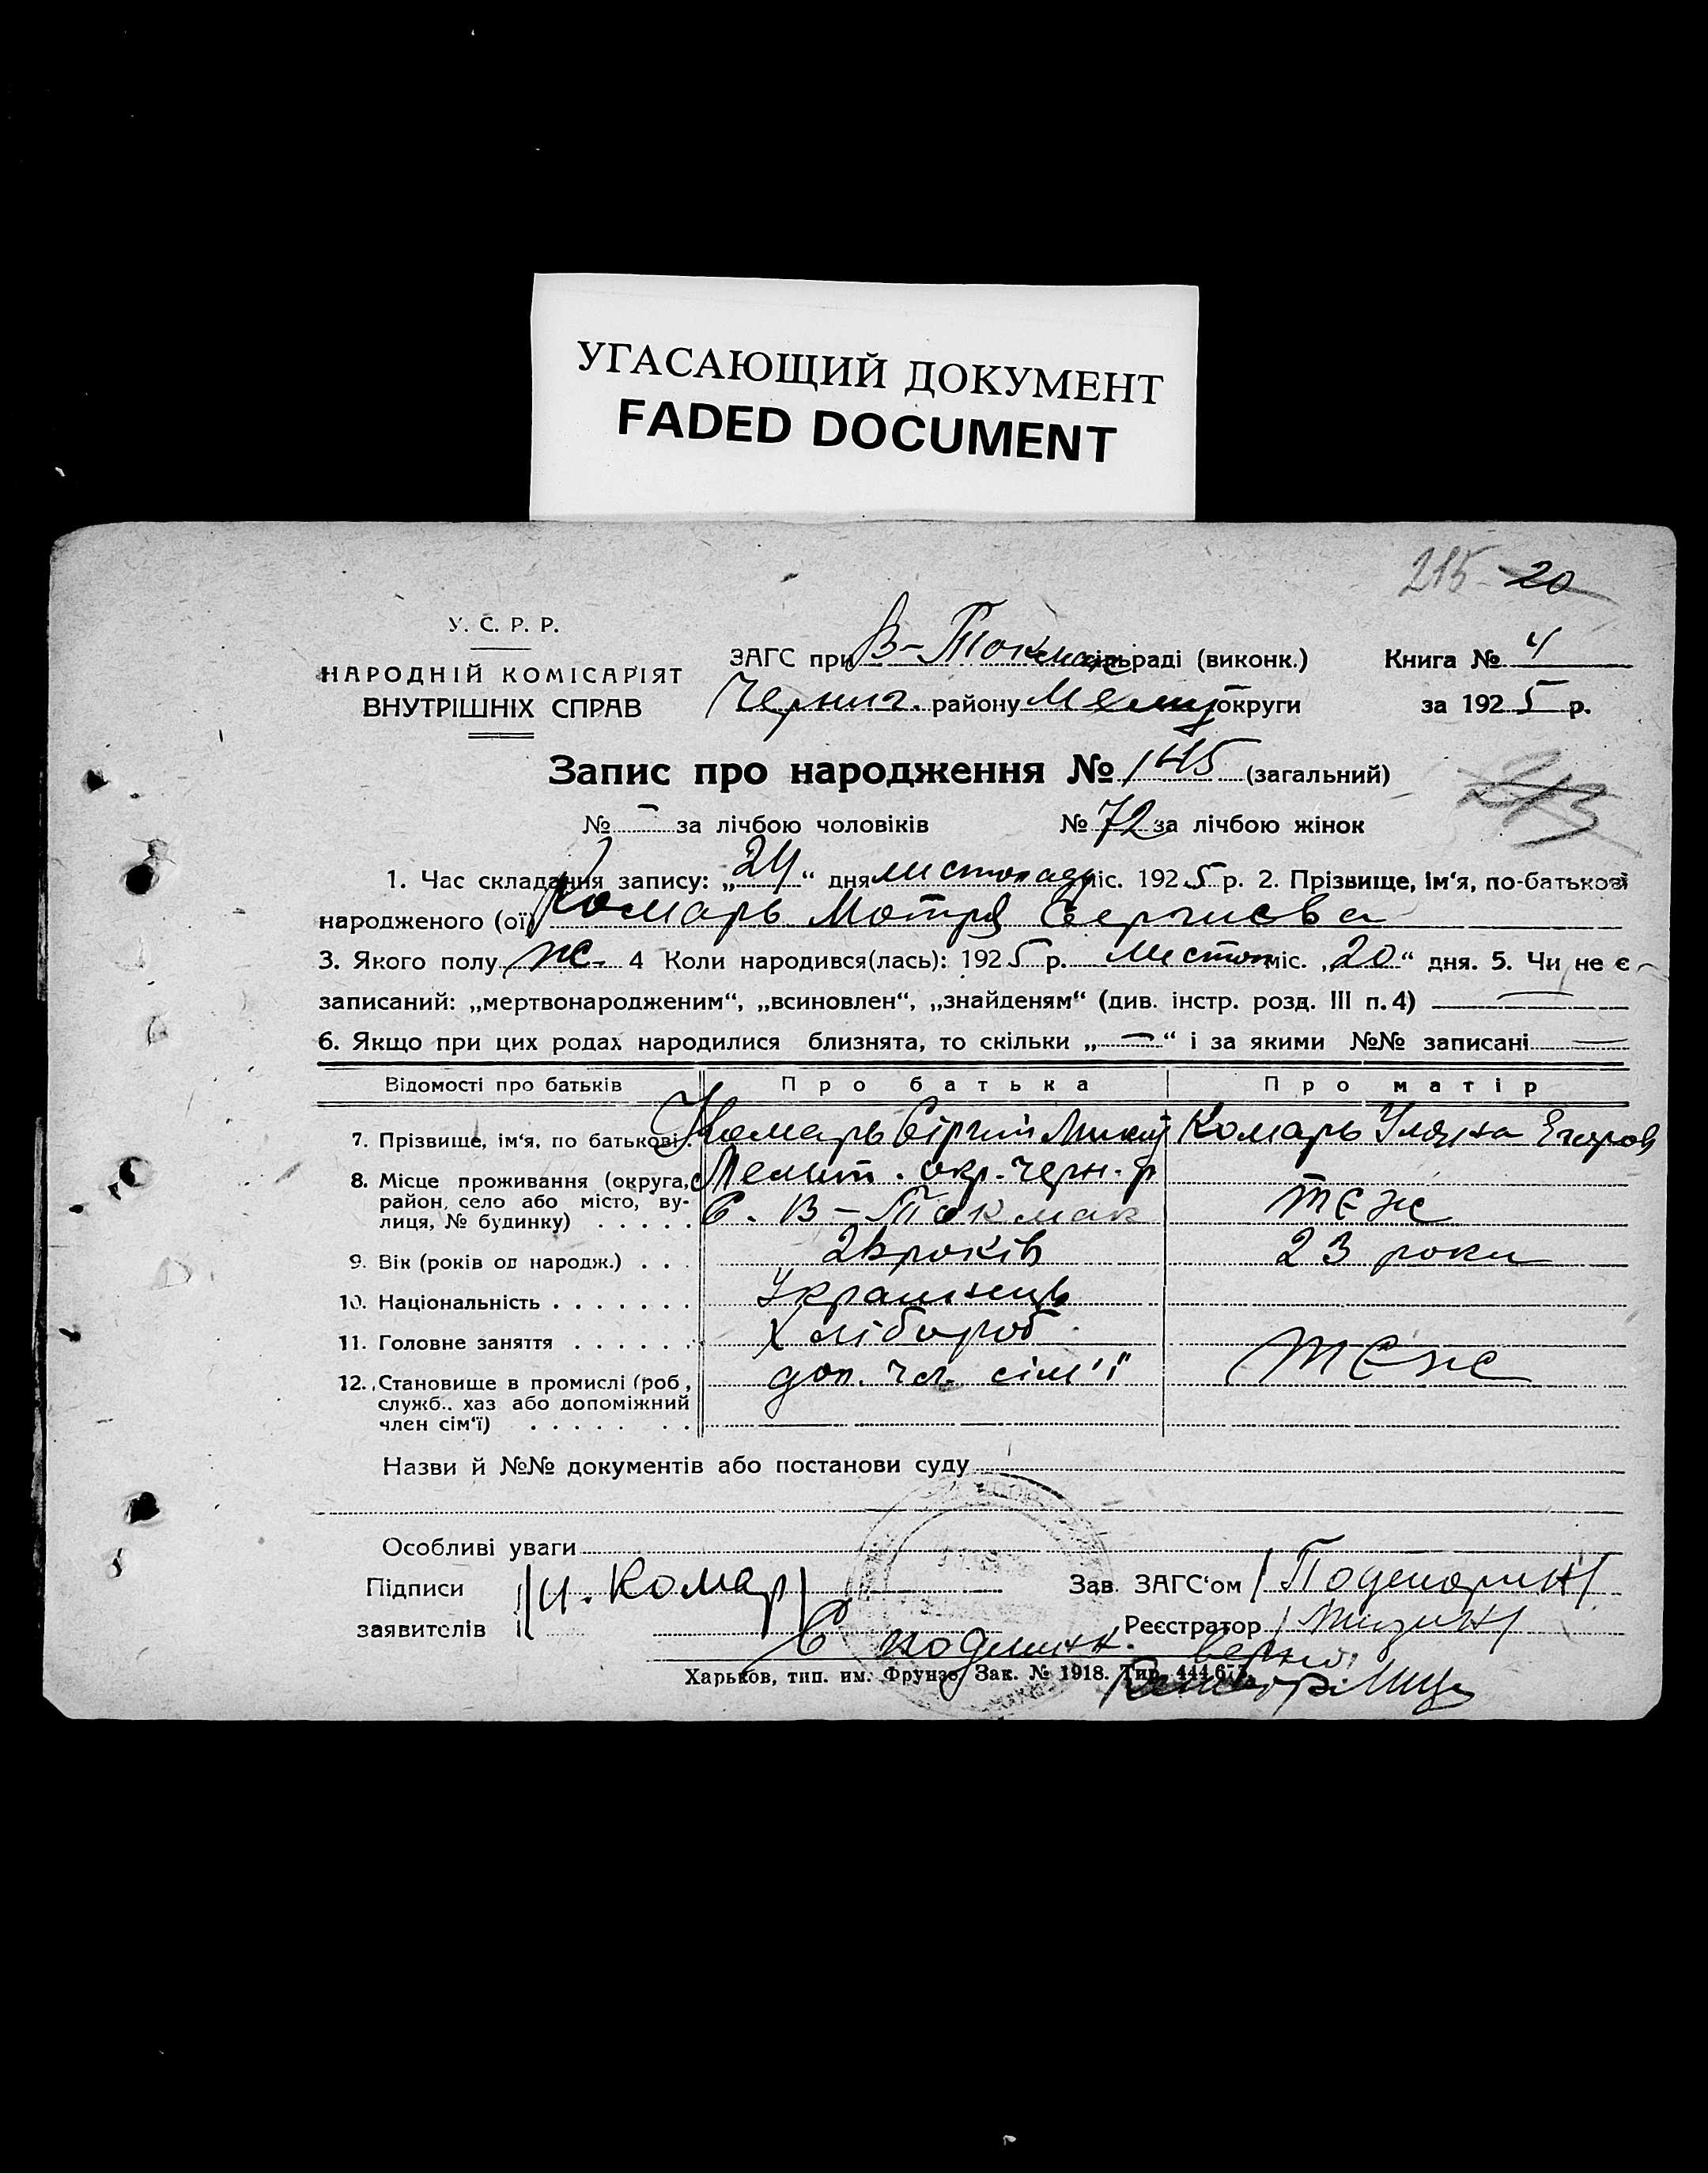 УГАСАЮЩИЙ ДОКУМЕНТ
FADED DOCUMENT
215 20
У. С. Р. Р.
НАРОДНІЙ КОМІСАРІЯТ
ВНУТРІШНІХ СПРАВ
ЗАГС при В-Токмак сільраді (виконк.)
Черниг. району Мелит округи
Книга № 4
за 1925 р.
Запис про народження № 145 (загальний)
213
№ - за лічбою чоловіків № 72 за лічбою жінок
1. Час складання запису: „24“ дня листопаду міс. 1925 р. 2. Прізвище, ім‘я, по-батькові
народженого (ої) Комарь Мотря Сергиєва
3. Якого полу ж. 4 Коли народився(лась): 1925 р. листоп міс. „20“ дня. 5. Чи не є
записаний: „мертвонародженим“, „всиновлен“, „знайденям“ (див. інстр. розд. III п. 4) —
6. Якщо при цих родах народилися близнята, то скільки „—“ і за якими №№ записані —
Відомості про батьків Про батька Про матір
7. Прізвище, ім‘я, по батькові. Комарь Сіргій Микит Комарь Уляна Егоров
8. Місце проживання (округа, район, село або місто, вулиця, № будинку) . . . . . Мелит. окр. Черн. р
С. В-Токмак теж
9. Вік (років од народж.) . . . років 23 роки
10. Національність . . . . . . . Українець
11. Головне заняття . . . . . . Хлібороб
12. Становище в промислі (роб, служб., хаз або допоміжний член сім‘ї) . . . . . . . доп. чл. сім'ї теж
Назви й №№ документів або постанови суду
Особливі уваги
Підписи
заявителів
Комар
Зав. ЗАГС‘ом
Реєстратор
С подлин. верно.
Харьков, тип. им. Фрунзе, Зак. № 1918. Тир. 444.673.